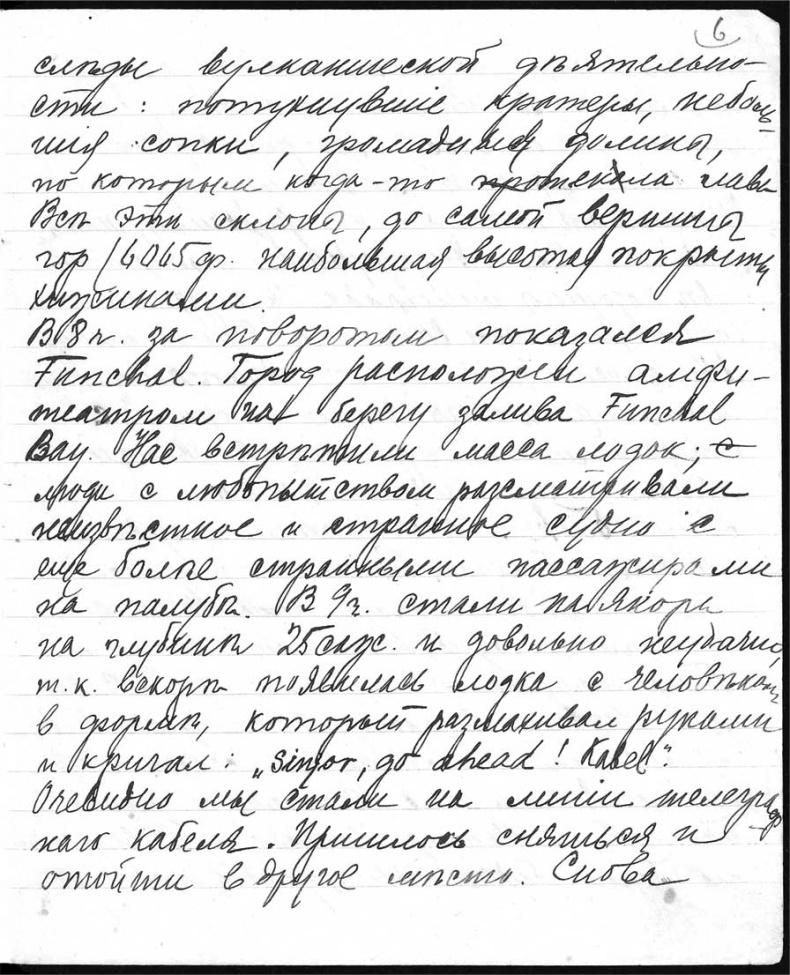 6
слѣды вулканической дѣятельно-
сти: потухнувшіе кратеры, неболь-
шія сопки, громадныя долины,
по которым когда-то протекала лава
Всѣ эти склоны, до самой вершины
гор /6065ф. наибольшая высота/ покрыты
хижинами.
В 8ч. за поворотом показался
Funchal. Город расположен амфи-
театром на берегу залива Funchal
Bay. Нас встрѣтили масса лодок; с
люди с любопытством разсматривали
неизвѣстное и странное судно с
еще болѣе странными пассажирами
на палубѣ. В 9ч. стали на якорь
на глубинѣ 25саж. и довольно неудачно,
т.к. вскорѣ появилась лодка с человѣком
в формѣ, который размахивал руками
и кричал: „Sinjor, go ahead! Kabel“.
Очевидно мы стали на линіи телеграф
наго кабеля. Пришлось сняться и
отойти в другое мѣсто. Снова